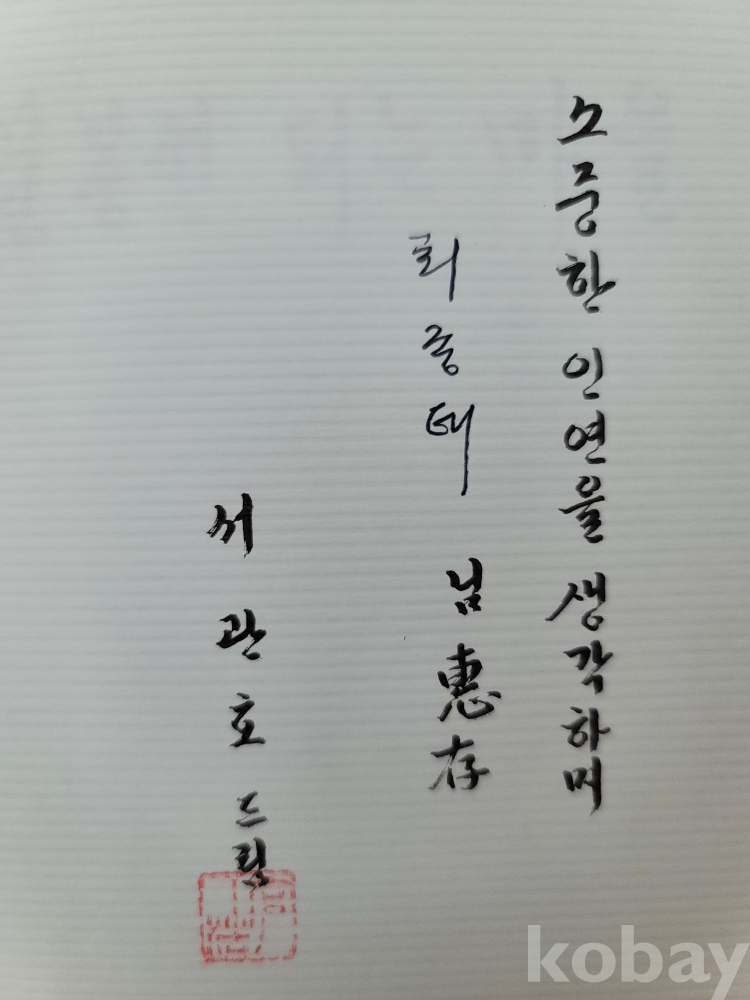 소중한 인연을 생각하며
최중태 님 惠存
서관호 드림
kobay